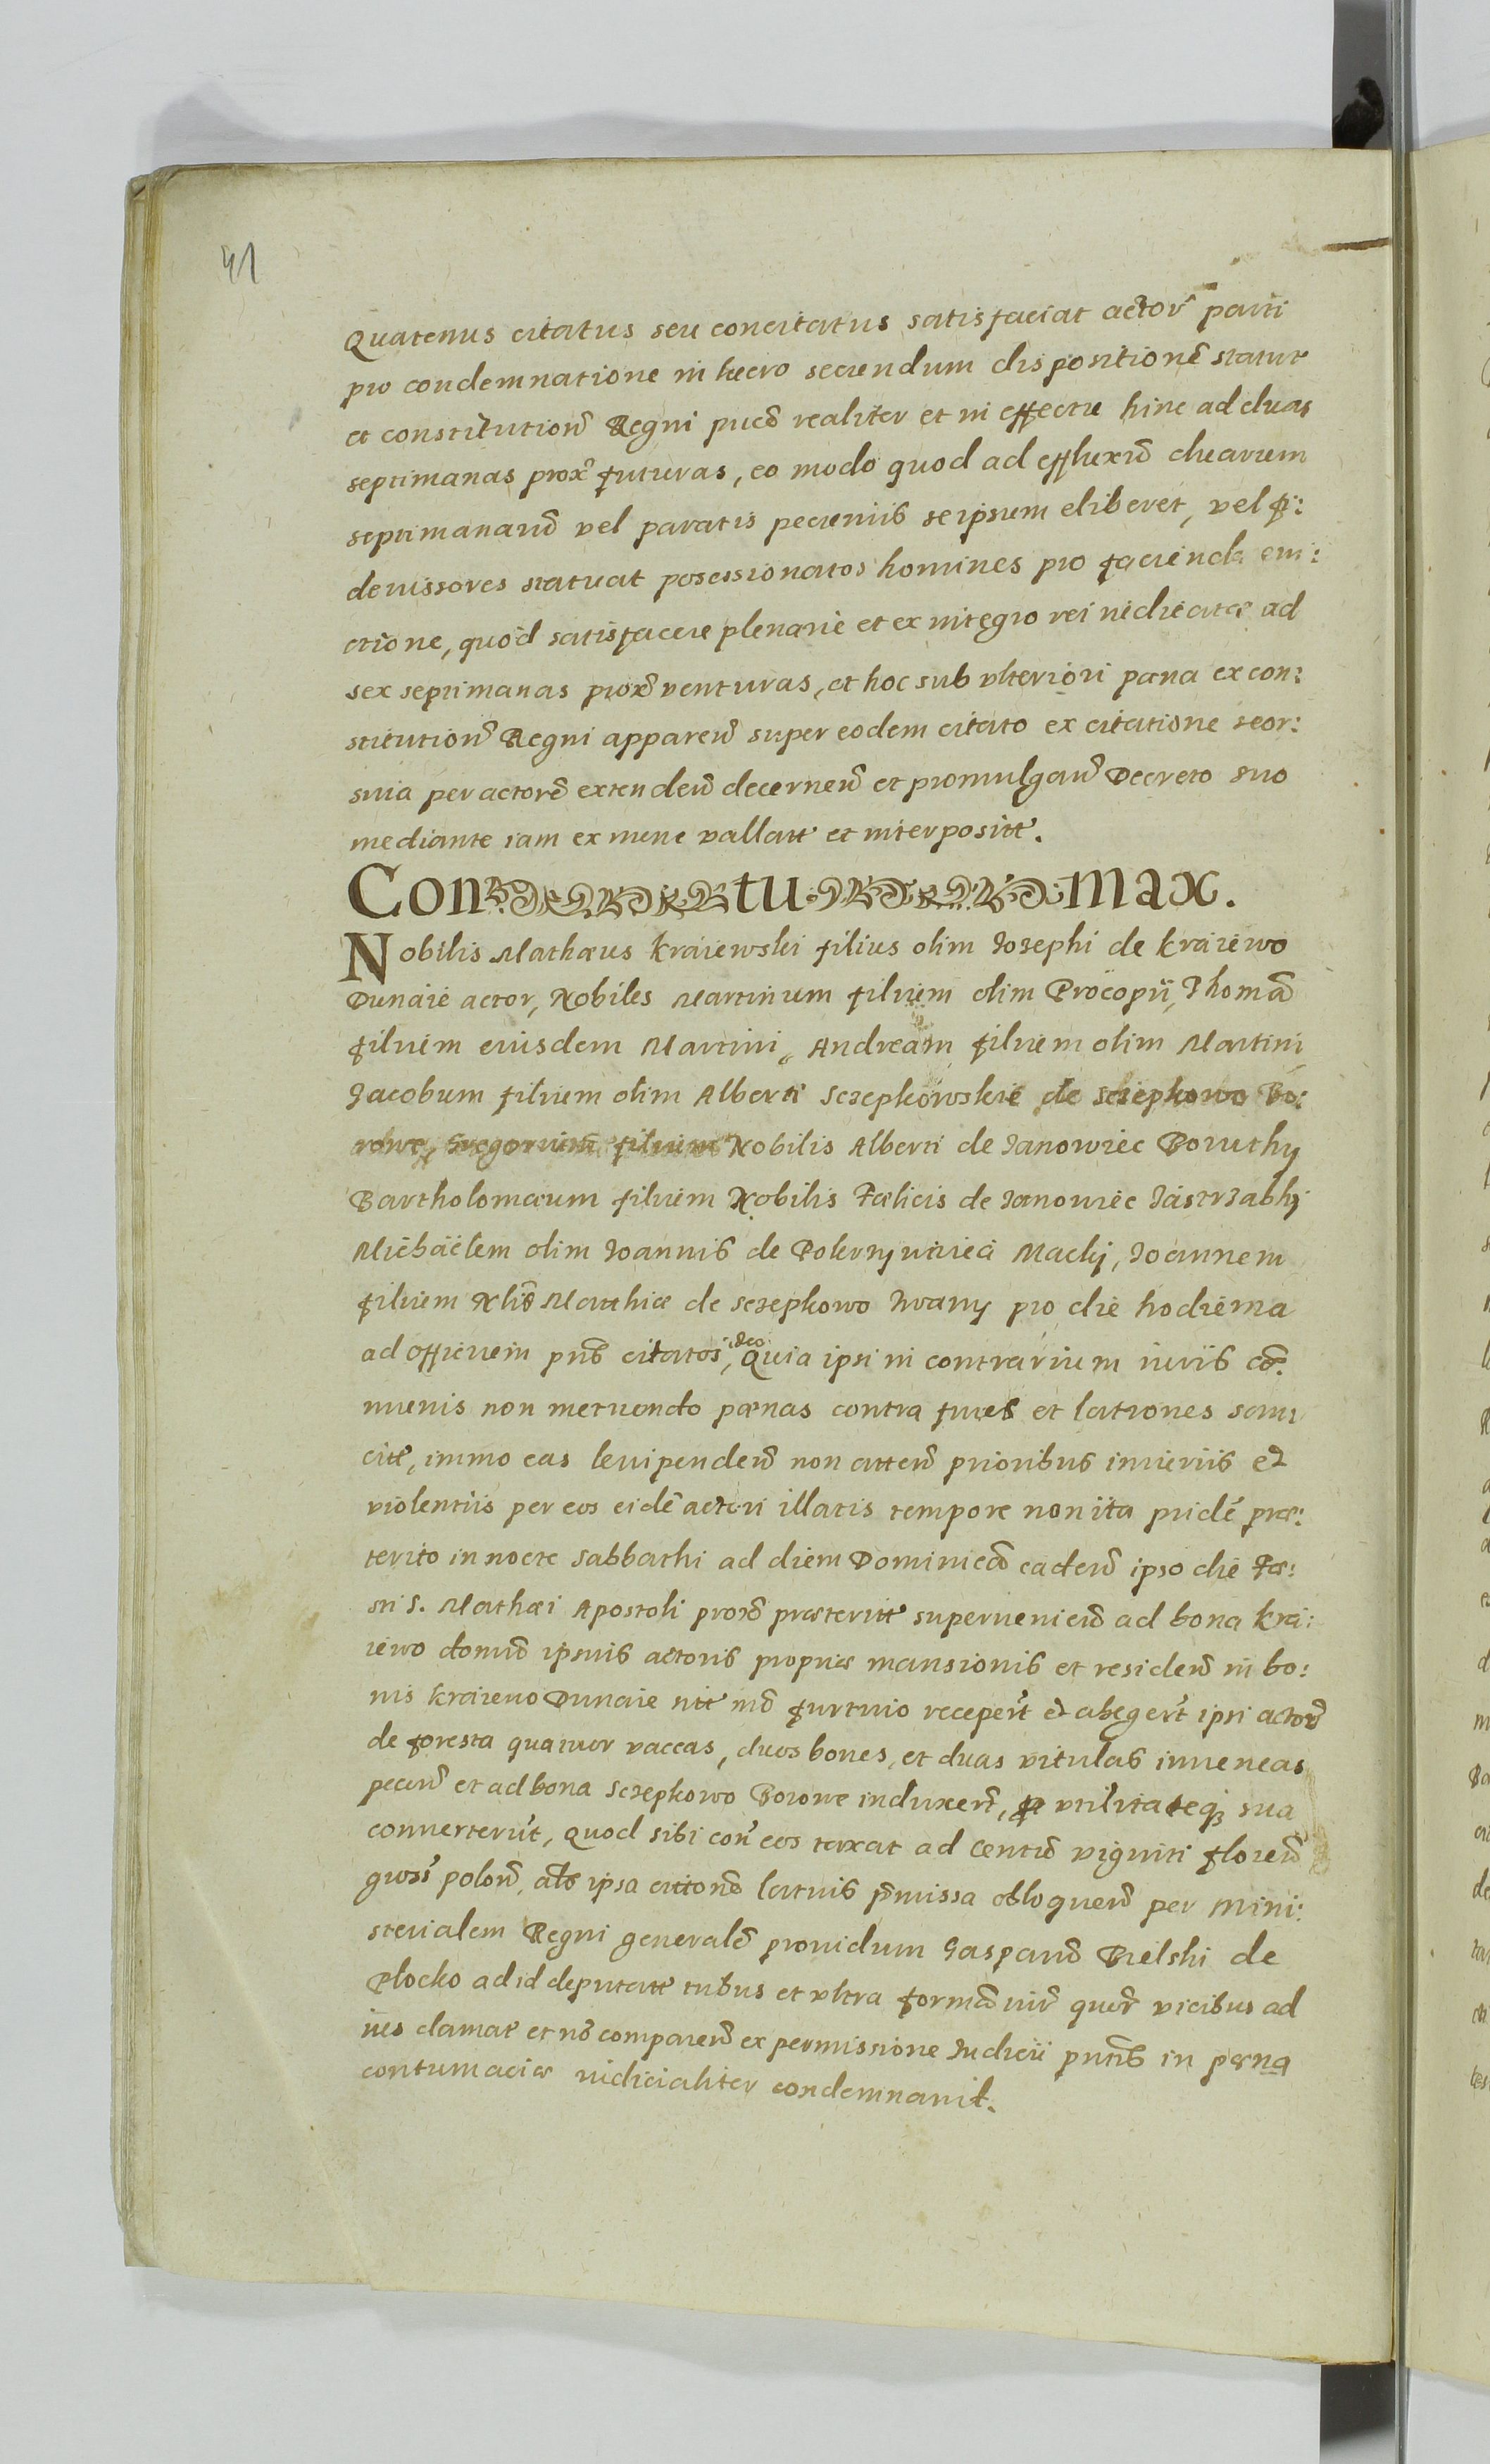 41
Quatenus citatus seu concitatus satisfaciat actor parti
pro condemnatione in lucro secundum dispositionē statut
et constitution Regni pucō realiter et in effectu hinc ad duas
septimanas prox futuras, eo modo quod ad effluxū duarum
septimanarū vel paratis pecuniis seipsum eliberet, vel fi:
deiussores statuat posessionatos homines pro facienda eui:
ctione, quod satisfacere plenarie et ex integro rei iudicatæ ad
sex septimanas prox venturas, et hoc sub vlteriori pæna ex con:
stitution Regni apparen super eodem citato ex citatione seor:
siua per actorē extenden decernen et promulgan Decreto suo
mediante iam ex nunc vallatt et interpositt.
Contumax.
Nobilis Mathæus Kraiewski filius olim Josephi de Kraiewo
Dunaie actor, Nobiles Martinum filium olim Procopii, Thomā
filium eiusdem Martini, Andream filium olim Martini
Jacobum filium olim Alberti Sczepkowskie de Sczepkowo Bo:
rowe, Gregorium filium Nobilis Alberti de Janowiec Boruthy
Bartholomæum filium Nobilis Fælicis de Janowiec Jastrzabki
Michaëlem olim Joannis de Pokrzywnica Macki, Joannem
filium Nlis Mathiæ de Sczepkowo Iwany pro die hodierna
ad officium pns citatos, ideo Quia ipsi in contrarium iuris cō:
munis non metuendo pænas contra fures et latrones sanci
citt, immo eas leuipenden non atten prioribus iniuriis et
violentiis per eos eidē actori illatis tempore non ita pridē præ:
terito in nocte Sabbathi ad diem Dominicā caden ipso die Fæ:
sti S. Mathæi Apostoli prox præteritt superuenien ad bona Kra:
iewo domū ipsius actoris propriæ mansionis et residen in bo:
nis Kraiewo Dunaie sitt mō furtiuo receper et abeger ipsi actor
de foresta quatuor vaccas, duos boues, et duas vitulas iuuencas
pecun et ad bona Sczepkowo Borowe induxer, utilitateq sua
conuerterūt, quod sibi con eos taxat ad Centū viginti floren
gross polon, ipsa citione latius pmissa obloquen per Mini:
sterialem Regni generalē prouidum Gasparū Bielski de
Plocko ad id deputatt tribus et vltra formā iur quer vicibus ad
ius clamat et nō comparen ex permissione Judicii pntis in pæna
contumaciæ iudicialiter condemnauit.